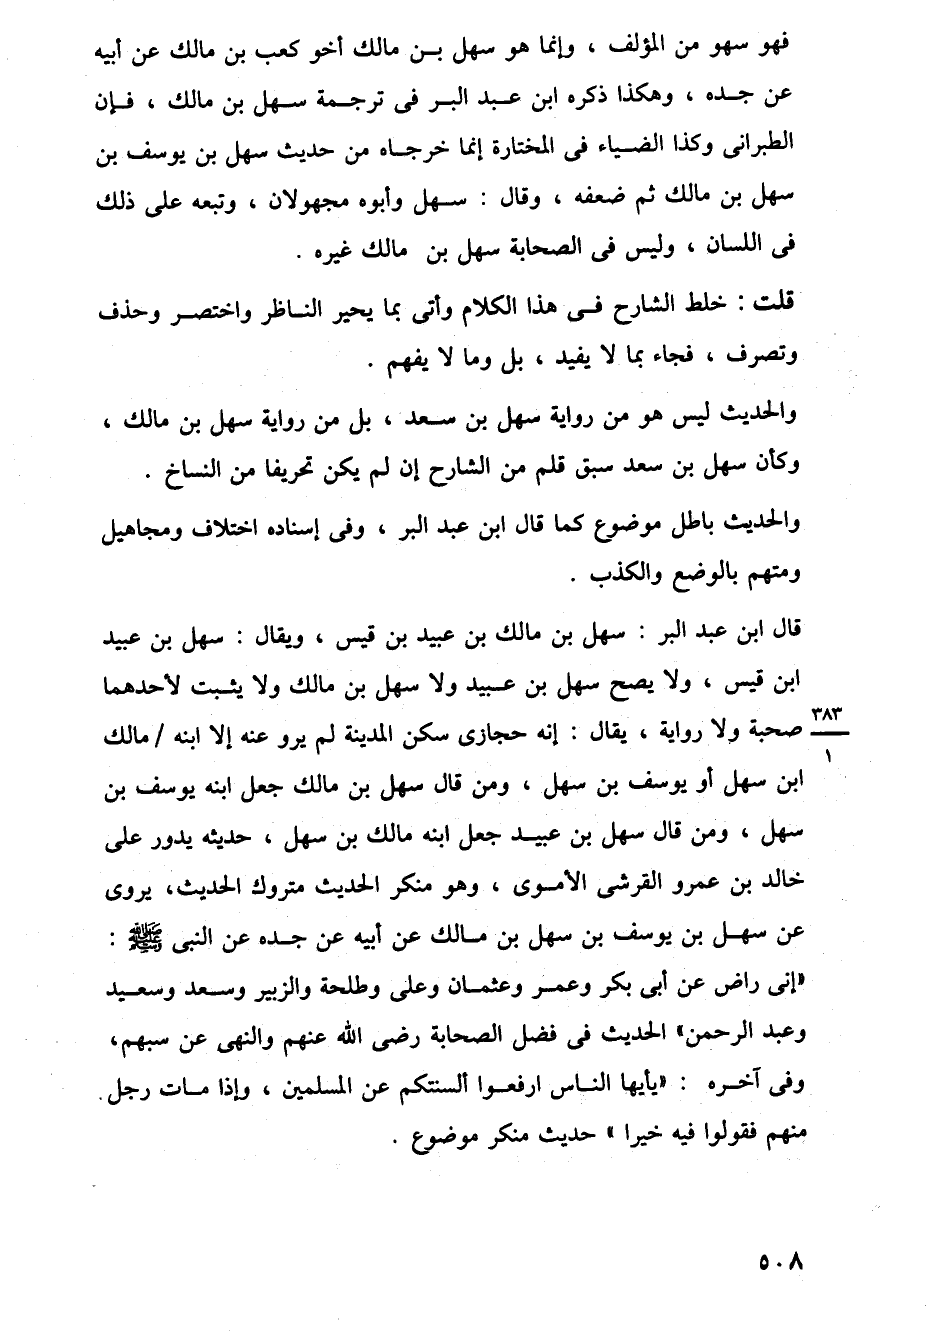 فهو سهو من المؤلف ، وإنما هو سهل بـن مالك أخو كعب بن مالك عن أبيه
عن جـده ، وهكذا ذكره ابن عـبد البـر فى ترجـمة سـهل بن مالك ، فـإن
الطبرانى وكذا الضـياء فى المختارة إنما خرجـاه من حديث سهل بن يوسف بن
سهل بن مالك ثم ضعفه ، وقال : سـهل وأبوه مجهولان ، وتبعه على ذلك
فى اللسان ، وليس فى الصحابة سهل بن مالك غيره .
قلت : خلط الشارح فـى هذا الكلام وأتى بما يحير النـاظر واختصـر وحذف
وتصرف ، فجاء بما لا يفيد ، بل وما لا يفهم .
والحديث ليس هو من رواية سهل بن سـعد ، بل من رواية سهل بن مالك ،
وكأن سهل بن سعد سبق قلم من الشارح إن لم يكن تحريفا من النساخ .
والحديث باطل موضوع كما قال ابن عبد البر ، وفى إسناده اختلاف ومجاهيل
ومتهم بالوضع والكذب .
قال ابن عبد البر : سهل بن مالك بن عبيد بن قيس ، ويقال : سهل بن عبيد
ابن قيس ، ولا يصح سهل بن عـبيد ولا سهل بن مالك ولا يثـبت لأحدهما
صحبة ولا رواية ، يقال : إنه حجازى سكن المدينة لم يرو عنه إلا ابنه /مالك
٣٨٣
١
ابن سهل أو يوسف بن سهل ، ومن قال سهل بن مالك جعل ابنه يوسف بن
سهل ، ومن قال سهل بن عبيـد جعل ابنه مالك بن سهل ، حديثه يدور على
خالد بن عمرو القرشى الأمـوى ، وهو منكر الحديث متروك الحديث، يروى
عن سهـل بن يوسف بن سهل بن مـالك عن أبيه عن جـده عن النبى ﷺ :
«إنى راض عن أبى بكر وعمـر وعثمـان وعلى وطلحة والزبير وسـعد وسعـيد
وعبد الرحمن» الحديث فى فضل الصحابة رضى الله عنهم والنهى عن سبهم،
وفى آخـره : «يأيها النـاس ارفعـوا ألسنتكم عن المسلمين ، وإذا مـات رجل
منهم فقولوا فيه خيرا » حديث منكر موضوع .
٥٠٨